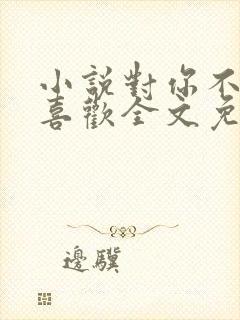 小說對你不
喜歡全文免
邊驥